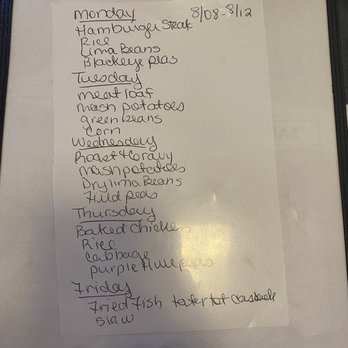 Monday 8/08-8/12
Hamburger Steak
Rice
Lima Beans
Blackeye peas
Tuesday
meat loaf
mash potatoes
green beans
Corn
Wednesday
Roast & Gravy
Mash potatoes
Dry lima Beans
Field peas
Thursday
Baked Chicken
Rice
Cabbage
purple Hull peas
Friday
Fried Fish tater tot
slaw